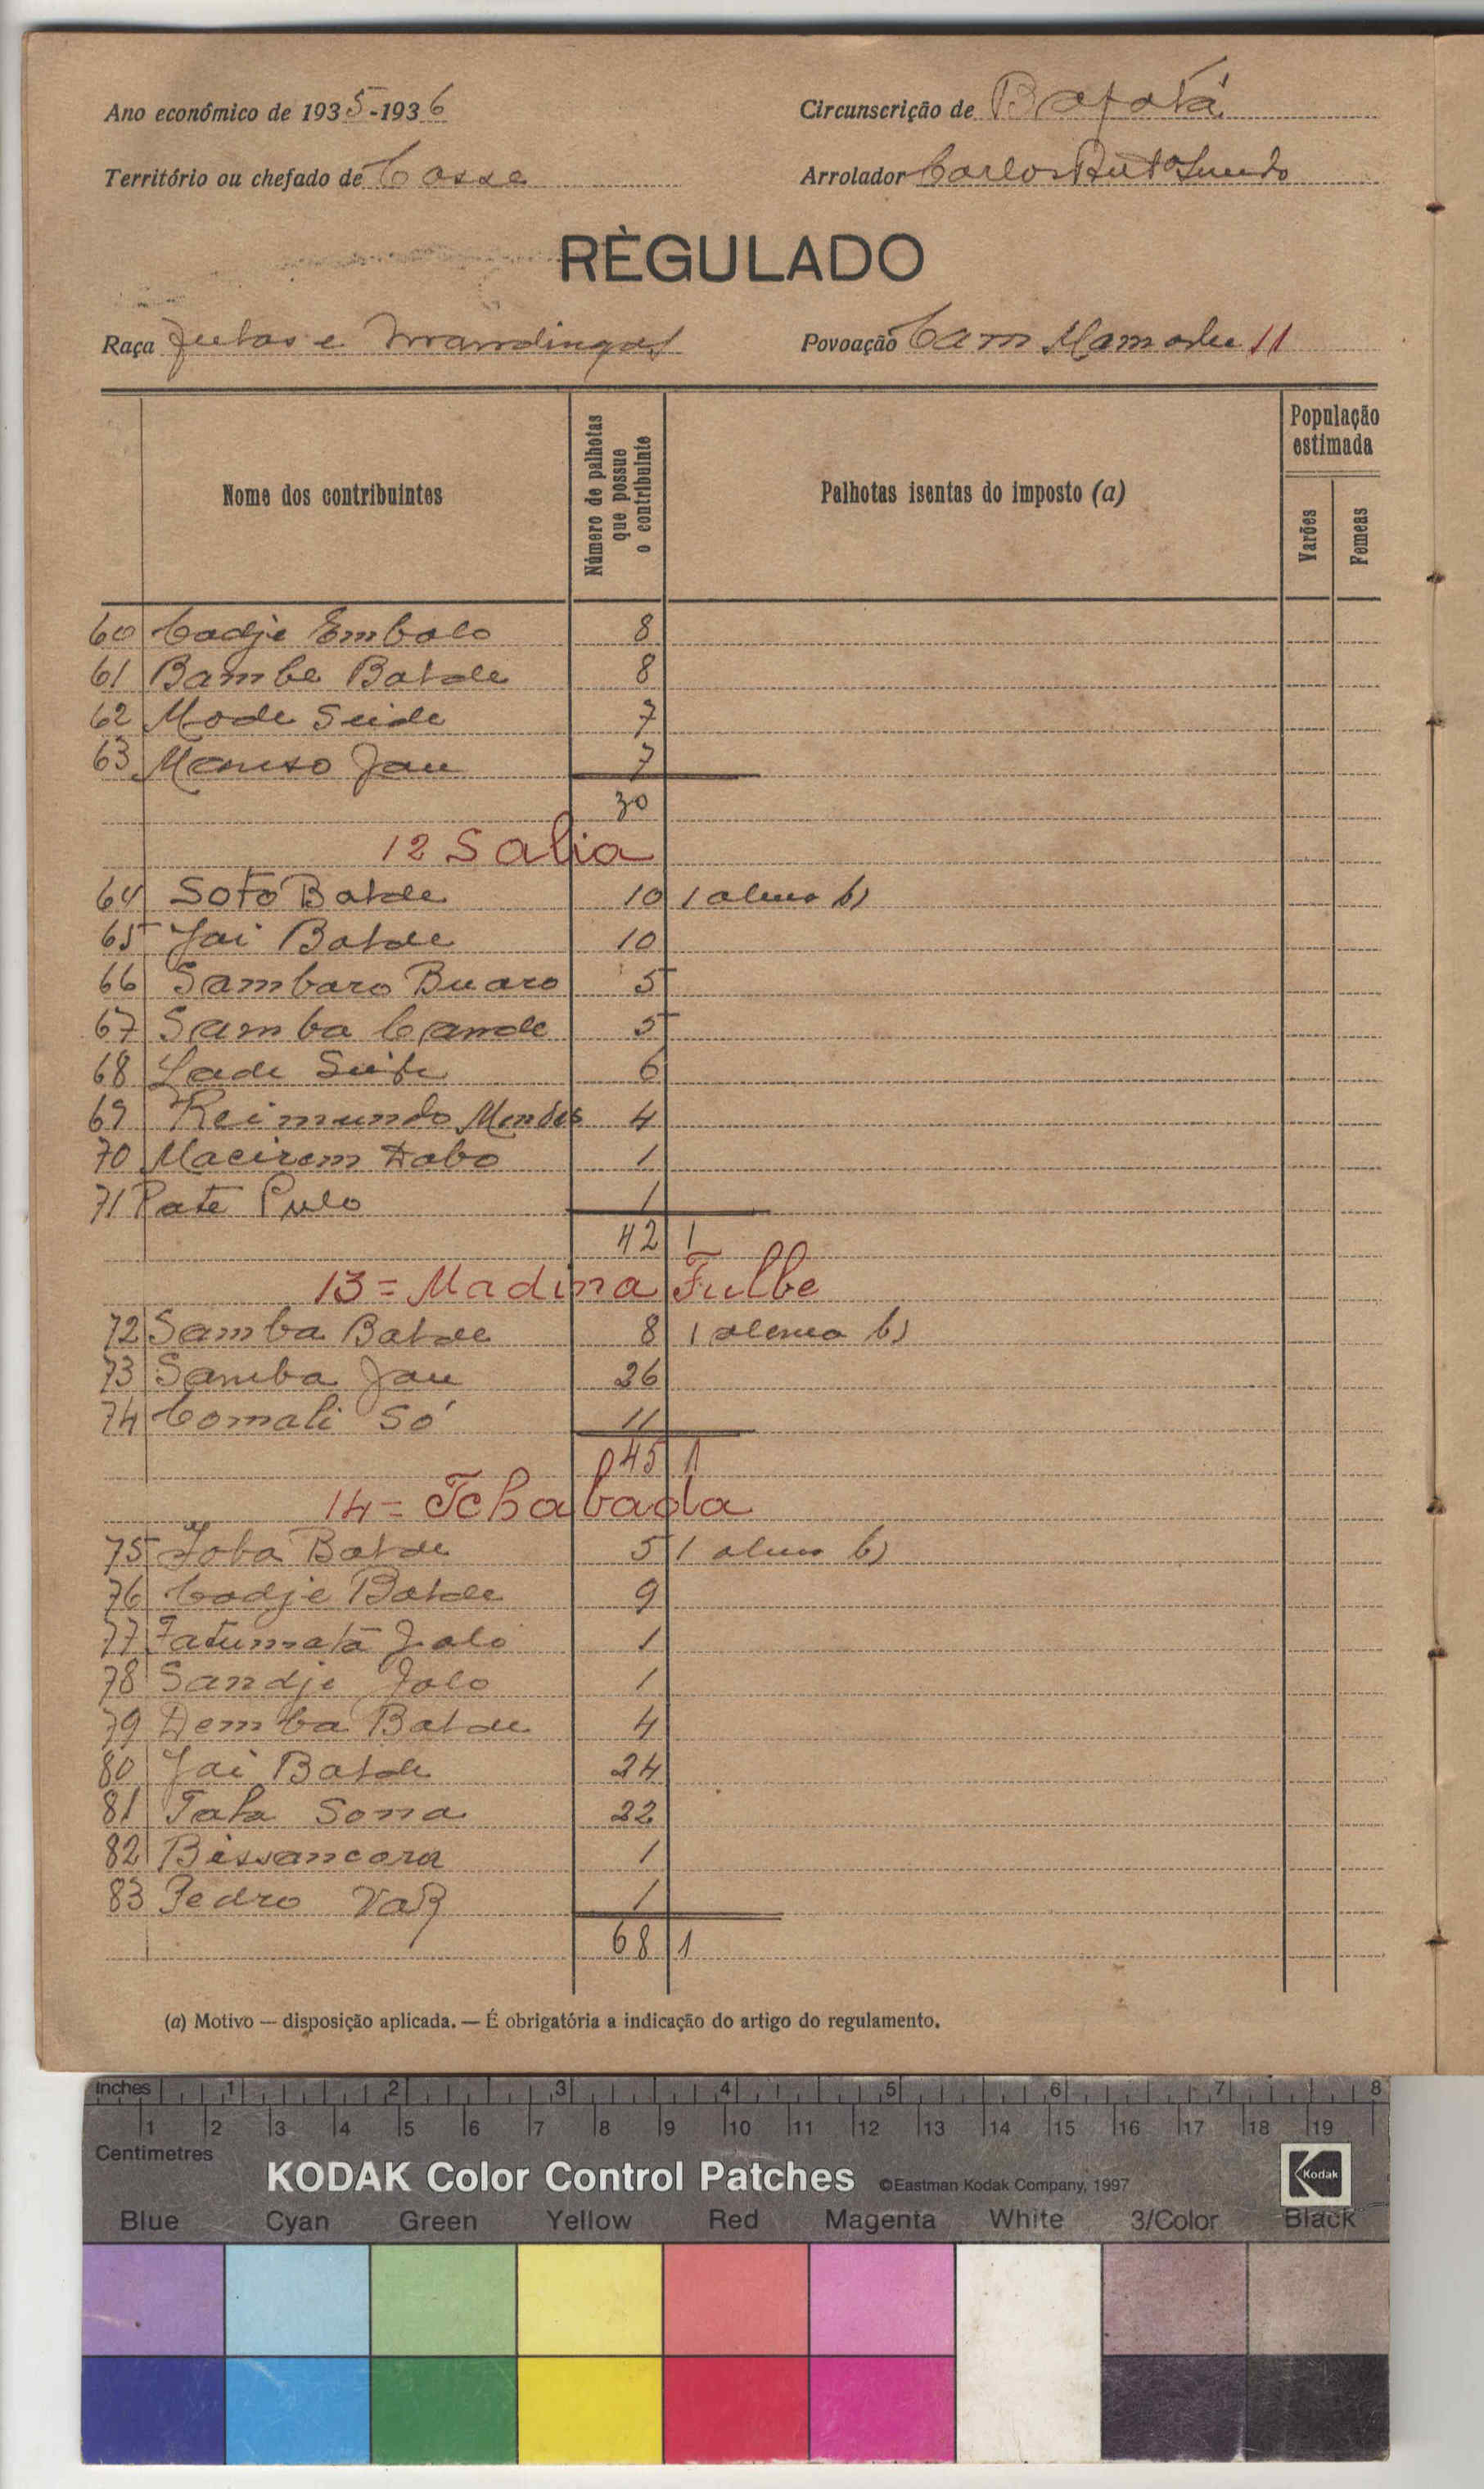 Ano económico de 1935-1936
Circunscrição de Bafatá
Território ou chefado de Cosse
Arrolador Carlos
RÈGULADO
Raça Fulas e Mandingas
Povoação Cam Mamadu 11
Nome dos contribuintes
Número de palhotas que possue o contribuinte
Palhotas isentas do imposto (a)
População estimada
Varões
Femeas
60 Cadje Embalo 8
61 Bambe Balde 8
62 Mode Seide 7
63 Manso Jau 7
30
12 Salia
64 Sofo Balde 10 1 alinea b)
65 Jai Balde 10
66 Sambaro Buaro 5
67 Samba Cande 5
68 Lade Seide 6
69 Reimundo Mendes 4
70 Macirem Dabo 1
71 Pate Pulo 1
42 1
13= Madina Fulbe
72 Samba Balde 8 1 alinea b)
73 Samba Jau 26
74 Comali Só 11
45 1
14= Tchabada
75 Joba Balde 5 1 alinea b)
76 Cadje Balde 9
77 Fatumatá Jalo 1
78 Sandji Jalo 1
79 Demba Balde 4
80 Jai Balde 24
81 Tala Sona 22
82 Bissancora 1
83 Pedro Vaz 1
68 1
(a) Motivo — disposição aplicada. — É obrigatória a indicação do artigo do regulamento.
Inches 1 2 3 4 5 6 7 8
1 2 3 4 5 6 7 8 9 10 11 12 13 14 15 16 17 18 19
Centimetres
KODAK Color Control Patches ©Eastman Kodak Company, 1997 Kodak
Blue Cyan Green Yellow Red Magenta White 3/Color Black